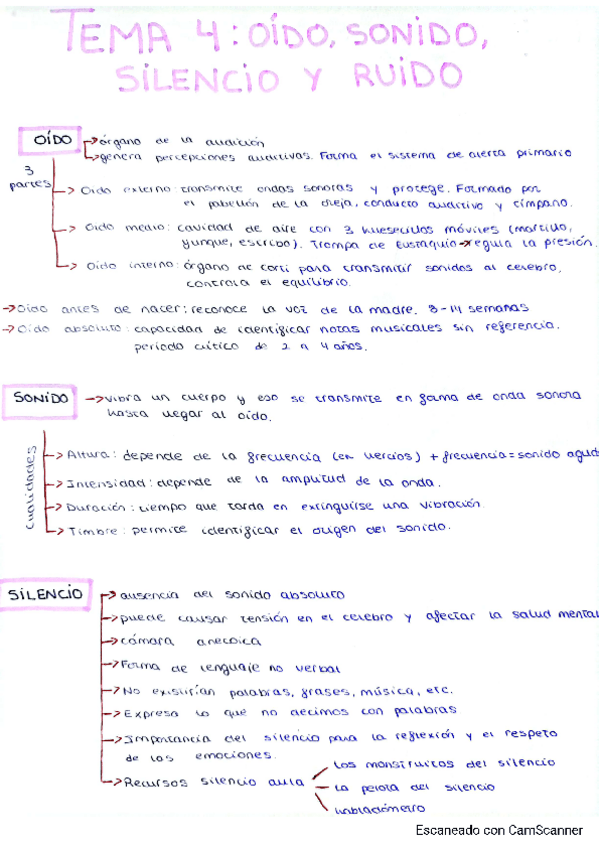 TEMA 4: OÍDO, SONIDO,
SILENCIO Y RUIDO
OÍDO
órgano de la audición
genera percepciones auditivas. Forma el sistema de alerta primario
3
partes
Oido externo: transmite ondas sonoras y protege. Formado por
el pabellón de la oreja, conducto auditivo y tímpano.
Oido medio: cavidad de aire con 3 huesecillos móviles (martillo,
yunque, estribo). Trompa de Eustaquio → regula la presión.
Oido interno: órgano de corti para transmitir sonidos al cerebro,
controla el equilibrio.
→ Oído antes de nacer: reconoce la voz de la madre. 8-14 semanas
→ Oído absoluto: capacidad de identificar notas musicales sin referencia.
período crítico de 2 a 4 años.
SONIDO
→ vibra un cuerpo y eso se transmite en forma de onda sonora
hasta llegar al oído.
Cualidades
→ Altura: depende de la frecuencia (en hercios) + frecuencia = sonido agud
→ Intensidad: depende de la amplitud de la onda.
→ Duración: tiempo que tarda en extinguirse una vibración
→ Timbre: permite identificar el origen del sonido.
SILENCIO
→ ausencia del sonido absoluto
→ puede causar tensión en el cerebro y afectar la salud mental
→ cámara anecoica
→ Forma de lenguaje no verbal
→ No existirían palabras, frases, música, etc.
→ Expresa lo que no decimos con palabras
→ Importancia del silencio para la reflexión y el respeto
de las emociones.
→ Recursos silencio aula
Los monstruitos del silencio
La pelota del silencio
Escaneado con CamScanner